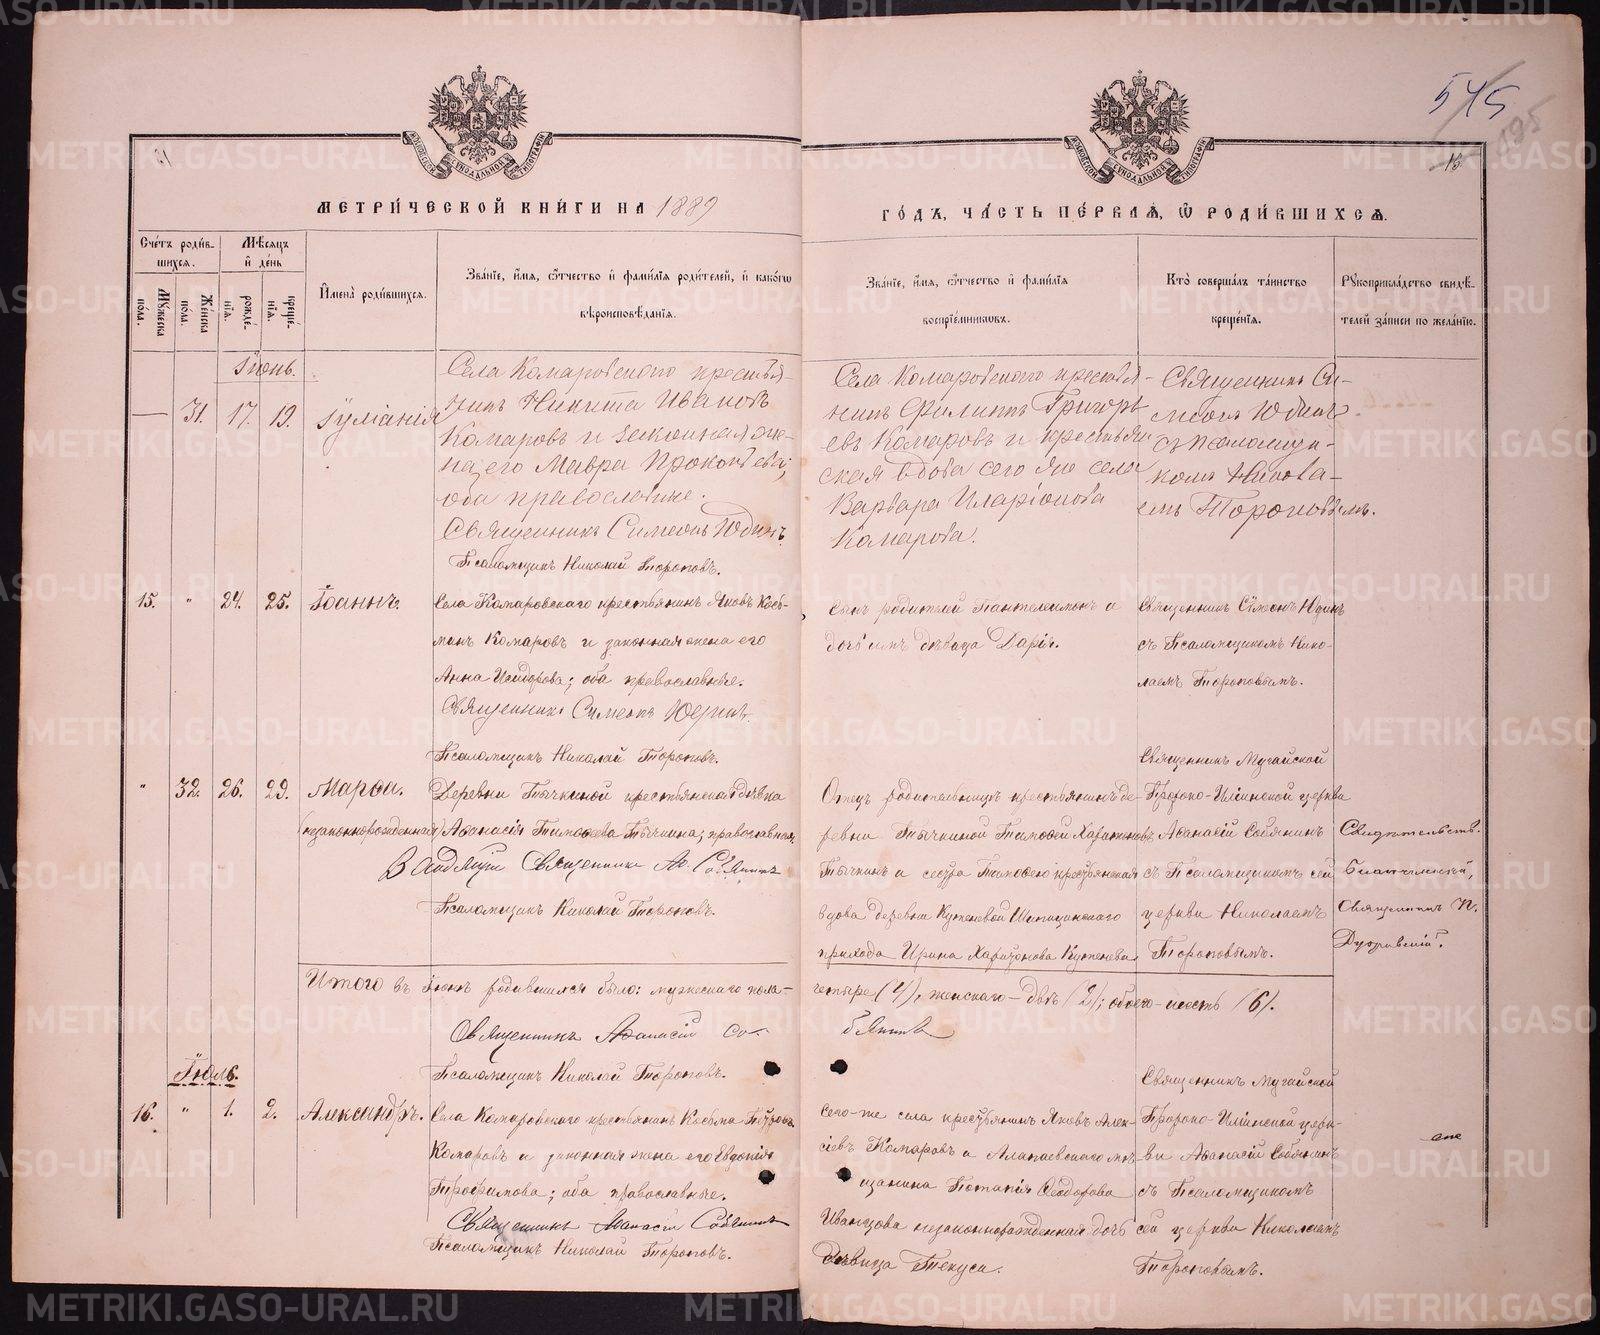 МЕТРИЧЕСКОЙ КНИГИ НА 1889
ГОДЪ, ЧАСТЬ ПЕРВАЯ, Ѡ РОДИВШИХСЯ.
545
195
15
61
Счетъ родив-
шихся.
Мѣсяцъ
и день
Мужеска
пола.
Женска
пола.
рожде-
нія.
креще-
нія.
Имена родившихся.
Званіе, имя, ѿчество и фамилія родителей, и какогѡ
вѣроисповѣданія.
Званіе, имя, ѿчество и фамилія
воспріемникѡвъ.
Кто совершалъ таинство
крещенія.
Рукоприкладство свидѣ-
телей записи по желанію.
Іюнь.
31. 17. 19. Іуліанія
Села Комаровского крестья-
нинъ Никита Ивановъ
Комаровъ и законная же-
на его Мавра Прокопьева;
оба православные.
Священникъ Симеонъ Юдинъ
Псаломщикъ Николай Тороповъ.
Села Комаровского крестья-
нинъ Филиппъ Григорь
евъ Комаровъ и крестьян
ская вдова сего же села
Варвара Иларіонова
Комарова.
Священникъ Си-
меонъ Юдинъ
съ псаломщи-
комъ Никола-
емъ Тороповымъ.
15. " 24. 25. Іоаннъ.
Села Комаровскаго крестьянинъ Яковъ Козь-
минъ Комаровъ и законная жена его
Анна Исидорова; оба православные.
Священникъ Симеонъ Юдинъ.
Псаломщикъ Николай Тороповъ.
сынъ родителей Пантелеимонъ и
дочь имъ дѣвица Дарія.
Священникъ Сімеонъ Юдинъ
съ Псаломщикомъ Нико-
лаемъ Тороповымъ.
" 32. 26. 29. Марѳа.
(незаконнорожденная)
Деревни Тычкиной крестьянская дѣвка
Аѳанасія Тимоѳеева Тычкина; православная.
Священникъ Аѳ. Собянинъ
Псаломщикъ Николай Тороповъ.
Отецъ родительницы крестьянинъ де-
ревни Тычкиной Тимоѳей Харитоновъ
Тычкинъ и сестра Тимоѳею крестьянская
вдова деревни Кутеневой Шипицинского
прихода Ирина Харитонова Кутенева.
Священникъ Мугайской
Пророко-Илiинской церкви
Аѳанасій Собянинъ
съ Псаломщикомъ сей
церкви Николаемъ
Тороповымъ.
Свидѣтельств.
Священникъ Н.
Итого въ Іюнѣ родившихся было: мужескаго пола-
четыре (4), женскаго-двѣ (2); обоего-шесть (6).
Священникъ Аѳанасій Со-
бянинъ
Псаломщикъ Николай Тороповъ.
Іюль.
16. " 1. 2. Александръ.
Села Комаровского крестьянинъ Косьма Петровъ
Комаровъ и законная жена его Евдокія
Трофимова; оба православные.
Священникъ Аѳанасій Собянинъ
Псаломщикъ Николай Тороповъ.
Сего-же села крестьянинъ Яковъ Алек-
сіевъ Комаровъ и Алапаевскаго мѣ-
щанина Потапія Ѳеодорова
Иванцова незаконнорожденная дочь
дѣвица Текуса.
Священникъ Мугайской
Пророко-Илiинской церк-
ви Аѳанасій Собянинъ
съ Псаломщикомъ
сей церкви Николаемъ
Тороповымъ.
METRIKI.GASO-URAL.RU